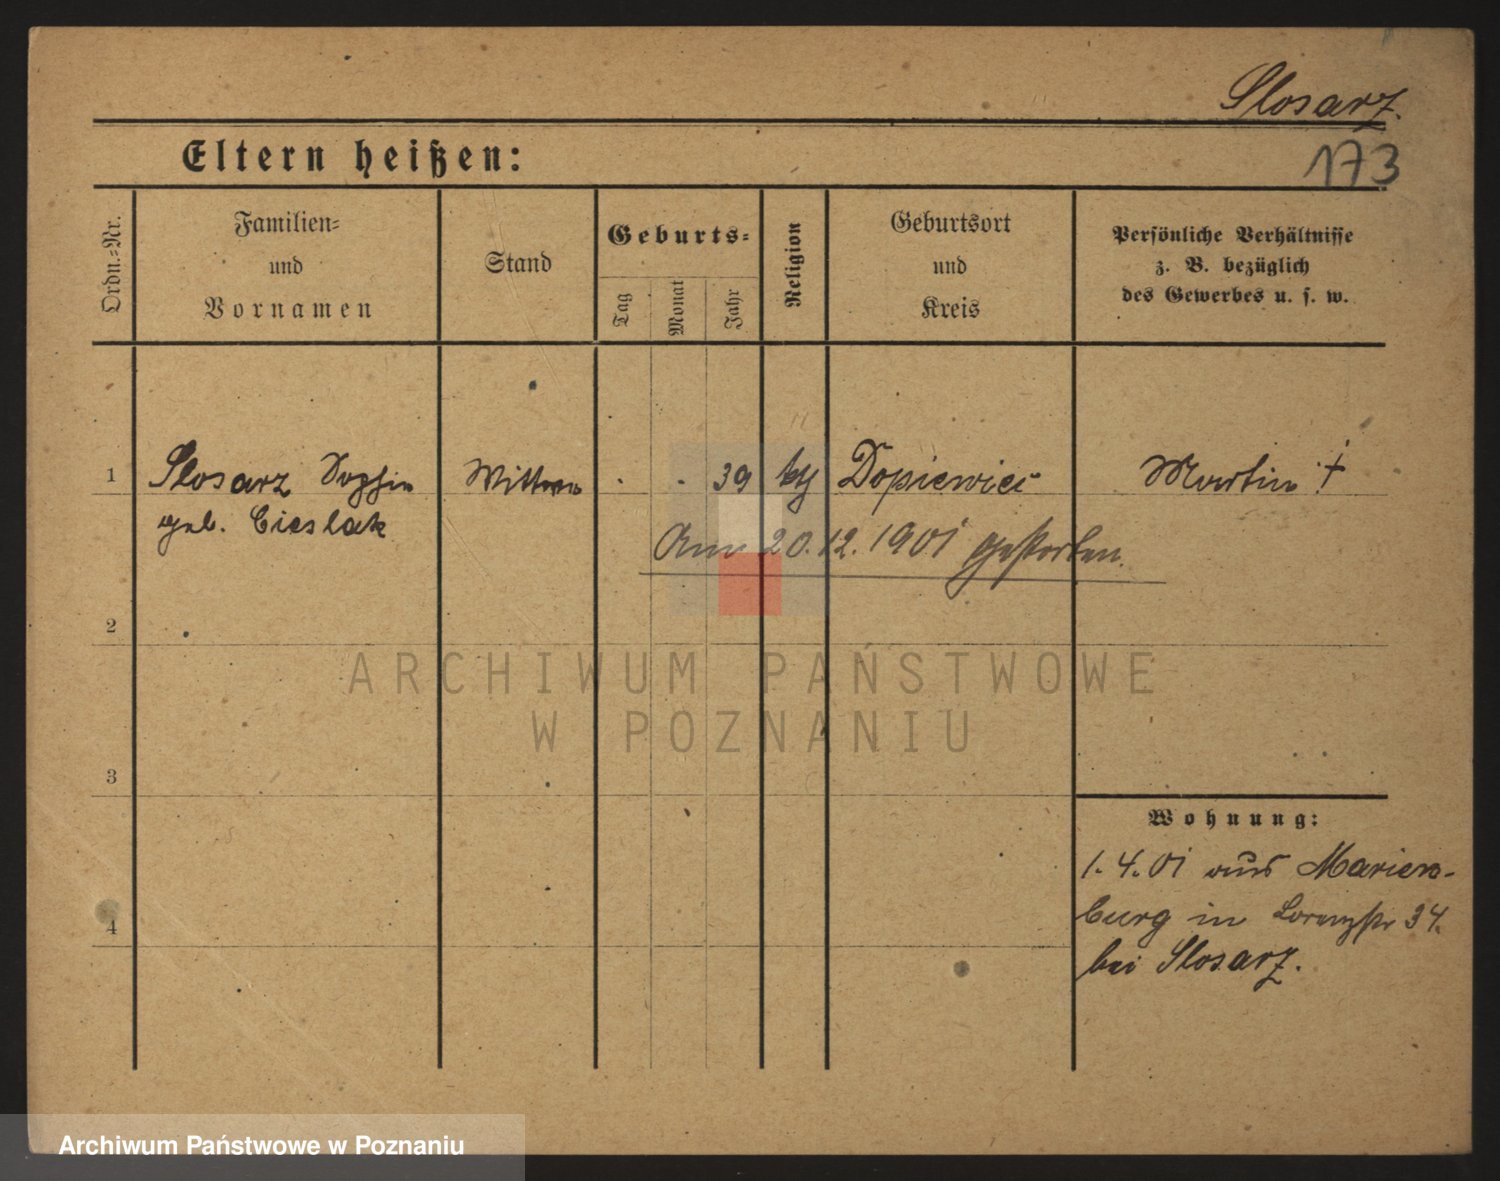 Slosarz.
173
Eltern heißen:
Ordn.-Nr.
Familien-
und
Vornamen
Stand
Geburts-
Tag
Monat
Jahr
Religion
Geburtsort
und
Kreis
Persönliche Verhältnisse
z. B. bezüglich
des Gewerbes u. s. w.
1 Slosarz Sophie Wittwe . . 39 Dopiewiec Martin †
geb. Cieslak
Am 20.12.1901 gestorben.
2
3
4
Wohnung:
1.4.01 aus Marien-
burg in Lorenzstr 34.
bei Slosarz.
ARCHIWUM PAŃSTWOWE
W POZNANIU
Archiwum Państwowe w Poznaniu